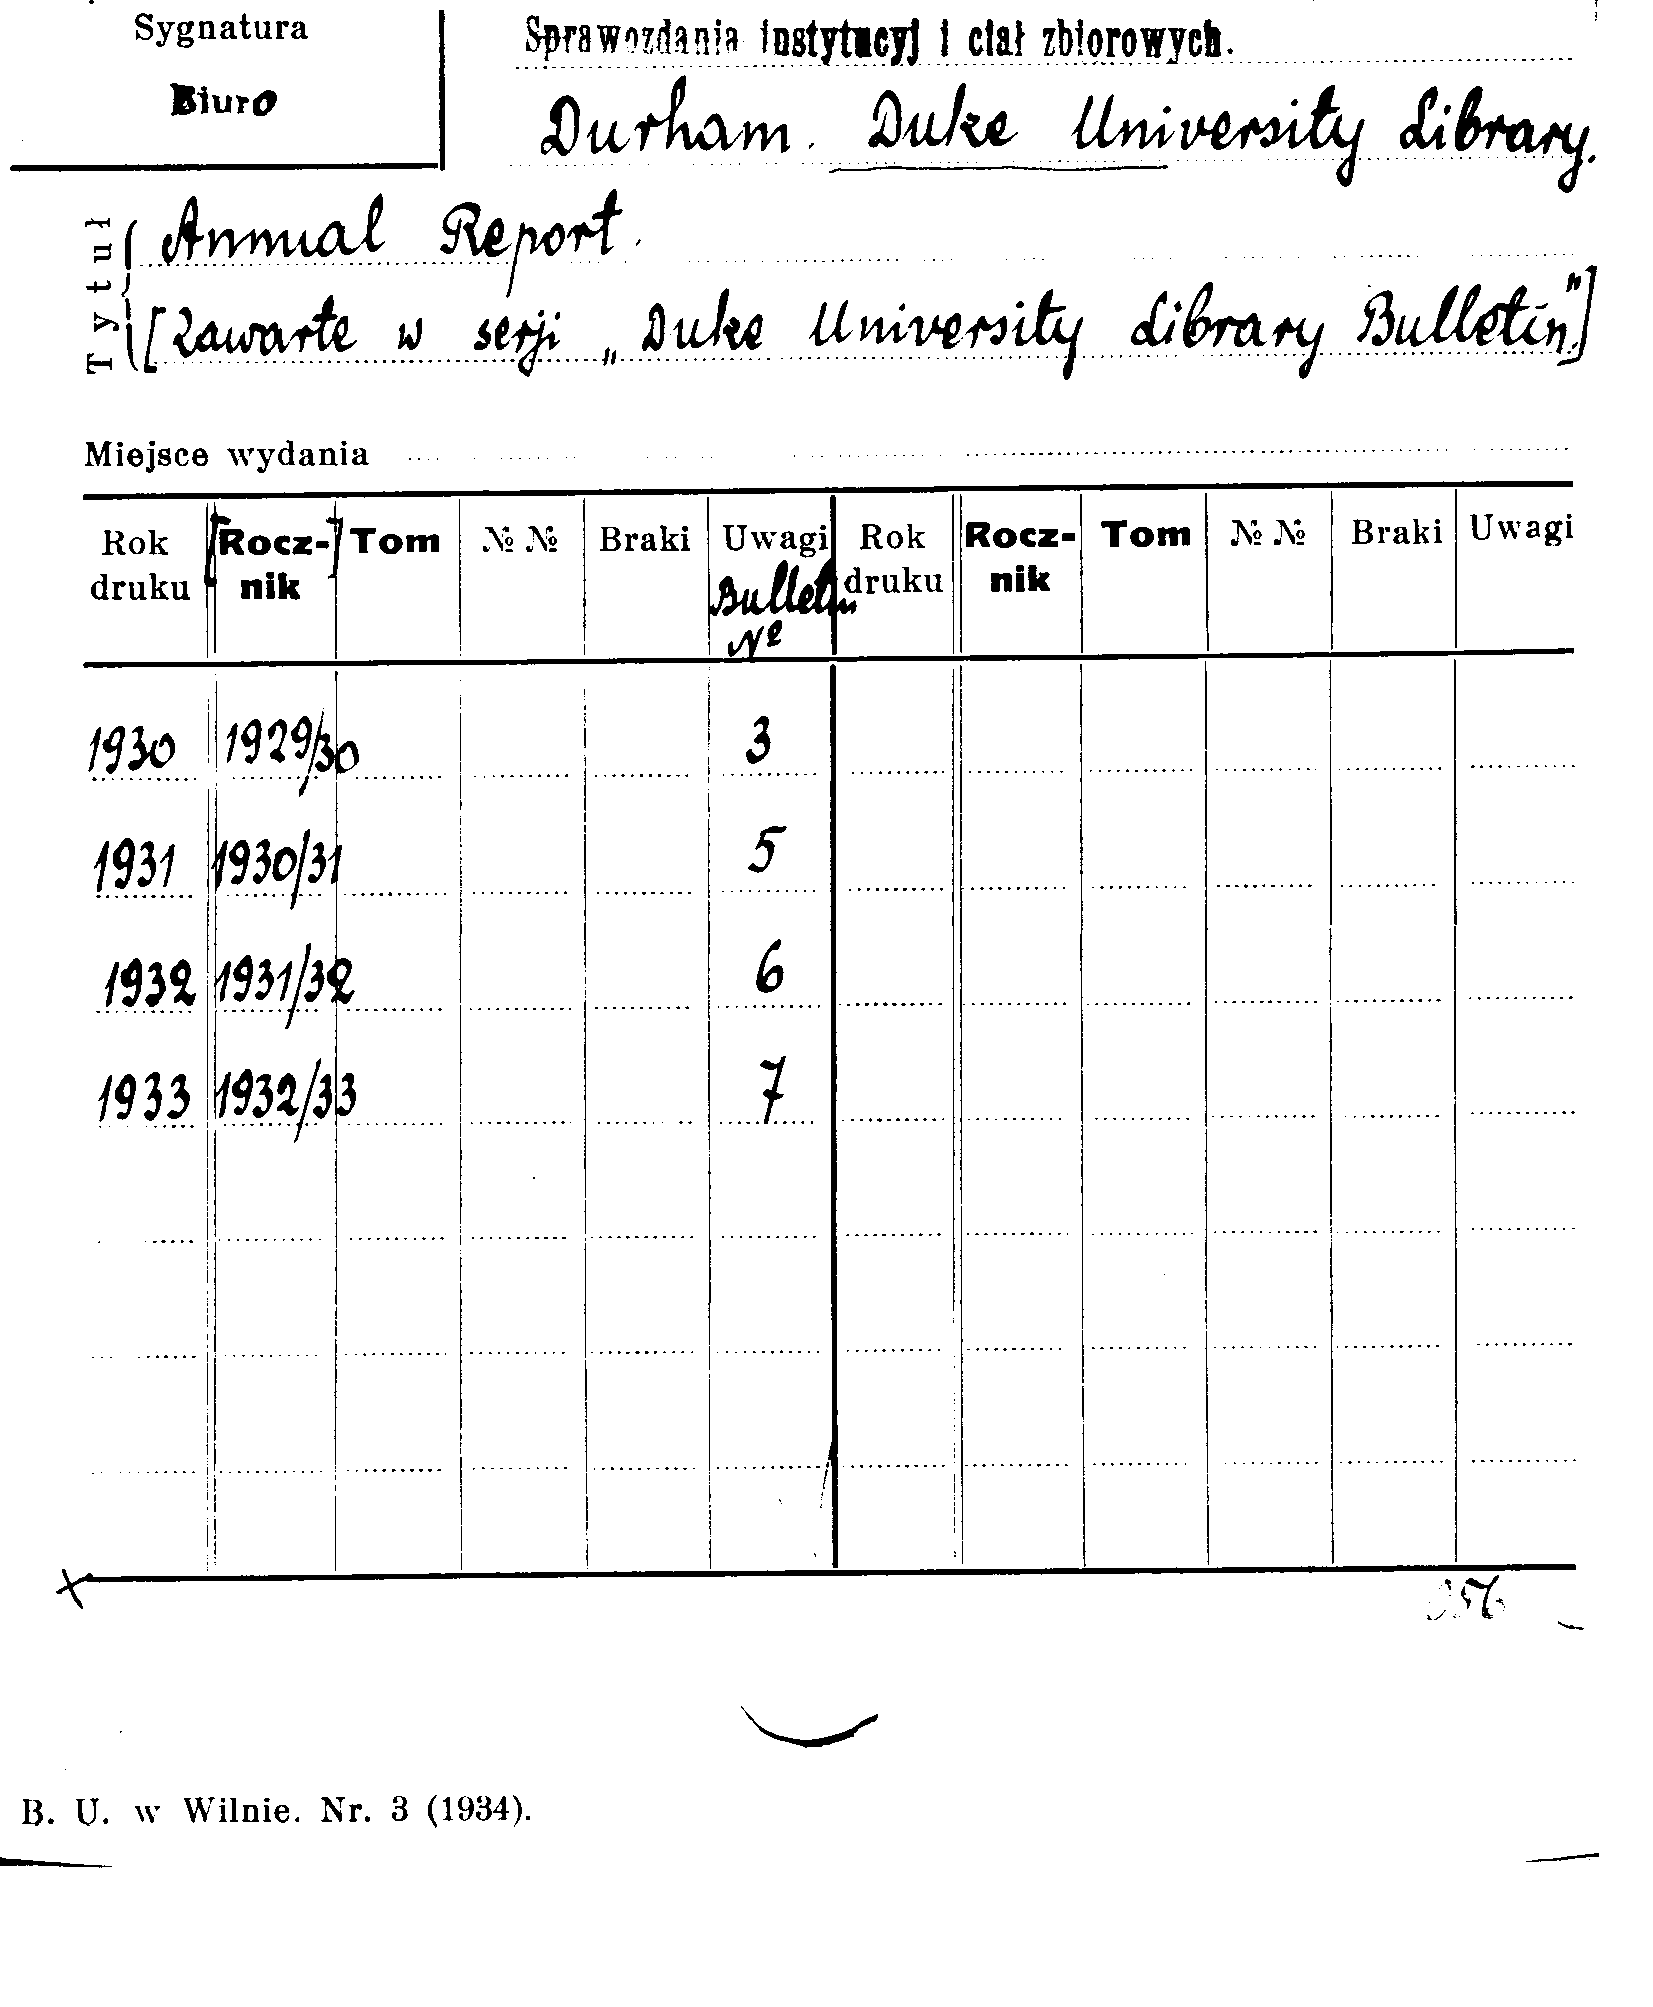 Sygnatura
Biuro
Sprawozdania instytucyj i ciał zbiorowych.
Durham. Duke University Library.
Tytuł
Annual Report.
[Zawarte w serji „Duke University Library Bulletin".]
Miejsce wydania
Rok druku [Rocznik] Tom № № Braki Uwagi Bulletin № Rok druku Rocz-nik Tom № № Braki Uwagi
1930 1929/30 3
1931 1930/31 5
1932 1931/32 6
1933 1932/33 7
B. U. w Wilnie. Nr. 3 (1934).